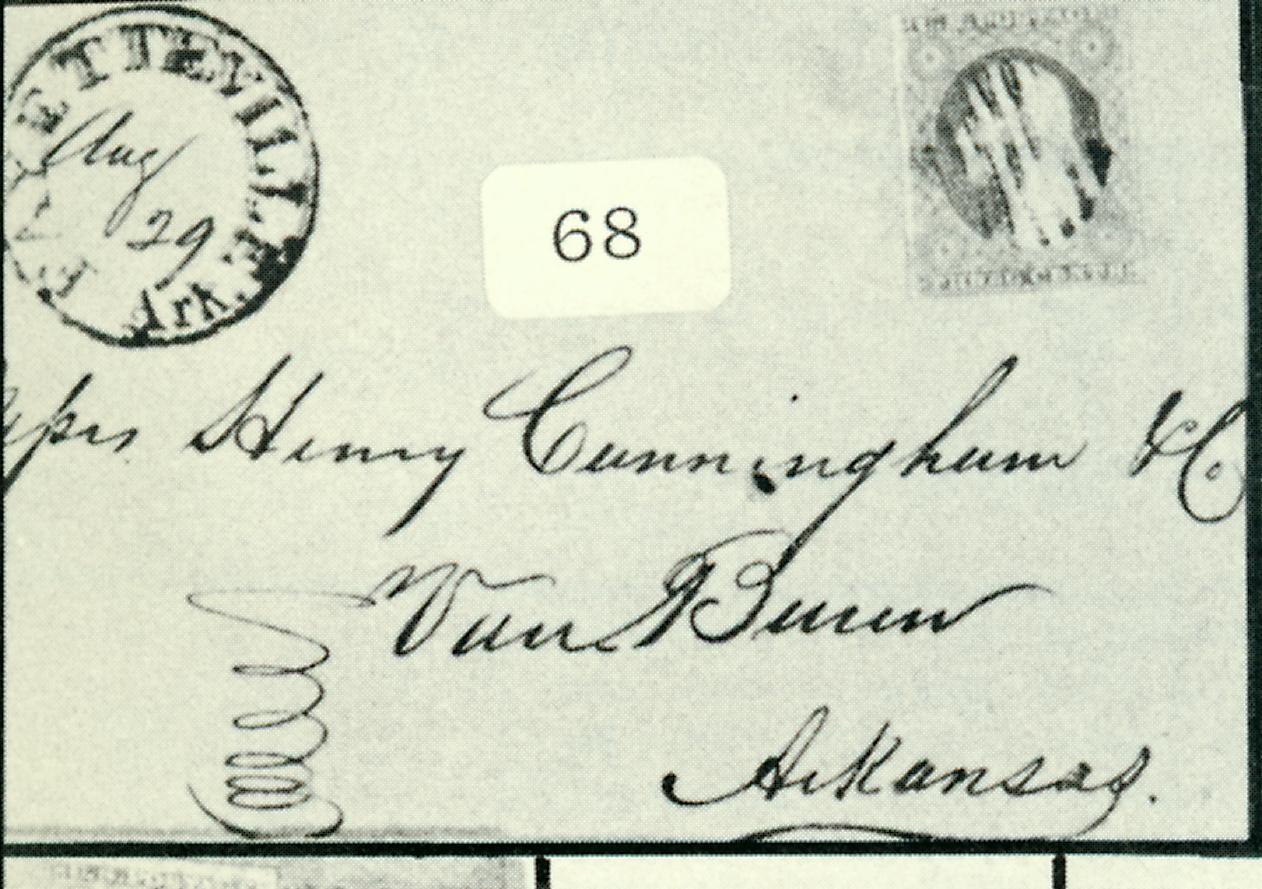 FAYETTEVILLE
Ark.
Aug
29
68
Henry Cunningham & Co
Van Buren
Arkansas.